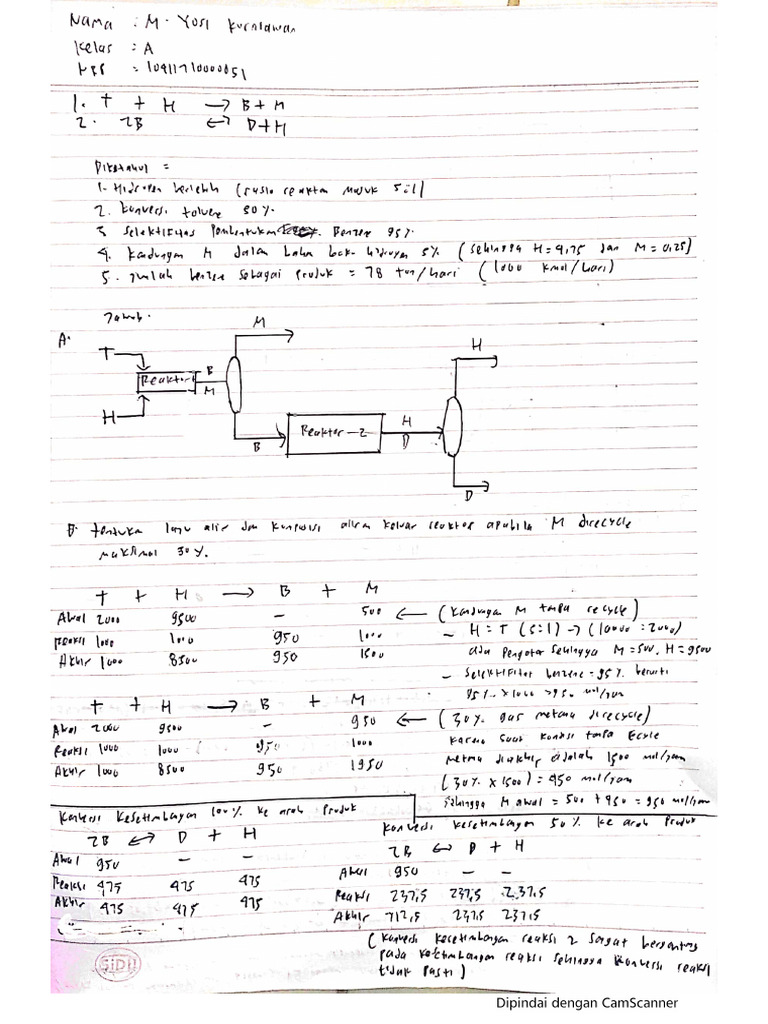 Nama : M. Yosi Kurniawan
Kelas : A
NRP = 10411710000051
1. T + H → B + M
2. 2B ↔ D + H
Diketahui =
1. Hidrogen berlebih (rasio reaktan masuk 5:1)
2. Konversi toluene 50%
3. Selektifitas Pembentukan Benzene 95%
4. Kandungan M dalam bahan baku hidrogen 5% (sehingga H = 4,75 dan M = 0,25)
5. Jumlah benzene sebagai Produk = 78 ton/hari (1000 kmol/hari)
Jawab.
A.
T
M
H
Reaktor
B
M
H
B
Reaktor-2
H
D
D
B. tentukan laju alir dan komposisi aliran keluar reaktor apabila M direcycle
maksimal 30%.
T + H → B + M
Awal 2000 9500 - 500 ← (Kandungan M tanpa recycle)
Reaksi 1000 1000 950 1000 - H = T (5:1) → (10000 : 2000)
Akhir 1000 8500 950 1500 ada Pengotor sehingga M = 500, H = 9500
- Selektifitas benzene = 95% berarti
95% × 1000 = 950 mol/jam
T + H → B + M
Awal 2000 9500 - 950 ← (30% gas metana direcycle)
Reaksi 1000 1000 950 1000 karena saat kondisi tanpa Ecycle
Akhir 1000 8500 950 1950 metana diakhir adalah 1500 mol/jam
(30% × 1500) = 450 mol/jam
Sehingga M awal = 500 + 450 = 950 mol/jam
Konversi Kesetimbangan 100% ke arah Produk
2B ↔ D + H
Awal 950 - -
Reaksi 475 475 475
Akhir 475 475 475
Konversi kesetimbangan 50% ke arah Produk
2B ↔ D + H
Awal 950 - -
Reaksi 237,5 237,5 237,5
Akhir 712,5 237,5 237,5
(Konversi kesetimbangan reaksi 2 sangat bergantung
pada kesetimbangan reaksi sehingga konversi reaksi
tidak pasti)
SIDU
Dipindai dengan CamScanner